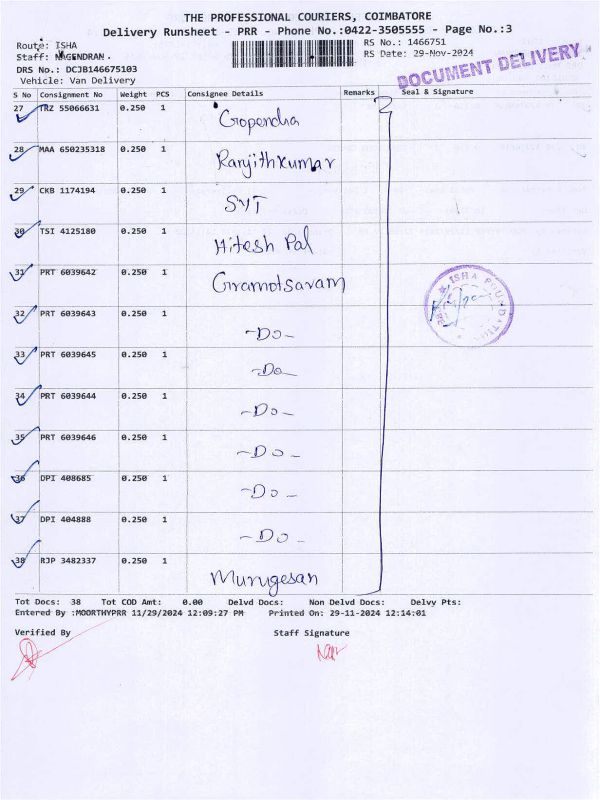 THE PROFESSIONAL COURIERS, COIMBATORE
Delivery Runsheet - PRR - Phone No.:0422-3505555 - Page No.:3
Route: ISHA
RS No.: 1466751
Staff: NAGENDRAN.
RS Date: 29-Nov-2024
DRS No.: DCJB146675103
Vehicle: Van Delivery
DOCUMENT DELIVERY
S No Consignment No Weight PCS Consignee Details Remarks Seal & Signature
27 TRZ 55066631 0.250 1 Gopendra
28 MAA 650235318 0.250 1 Ranjithkumar
29 CKB 1174194 0.250 1
30 TSI 4125180 0.250 1 Hitesh Pal
31 PRT 6039642 0.250 1 Gramotsavam
ISHA FOUNDATION
32 PRT 6039643 0.250 1 -Do-
33 PRT 6039645 0.250 1 -Do-
34 PRT 6039644 0.250 1 -Do-
35 PRT 6039646 0.250 1 -Do-
36 DPI 408685 0.250 1 -Do-
37 DPI 404888 0.250 1 -Do-
38 RJP 3482337 0.250 1 Murugesan
Tot Docs: 38 Tot COD Amt: 0.00 Delvd Docs: Non Delvd Docs: Delvy Pts:
Entered By :MOORTHYPRR 11/29/2024 12:09:27 PM Printed On: 29-11-2024 12:14:01
Verified By Staff Signature